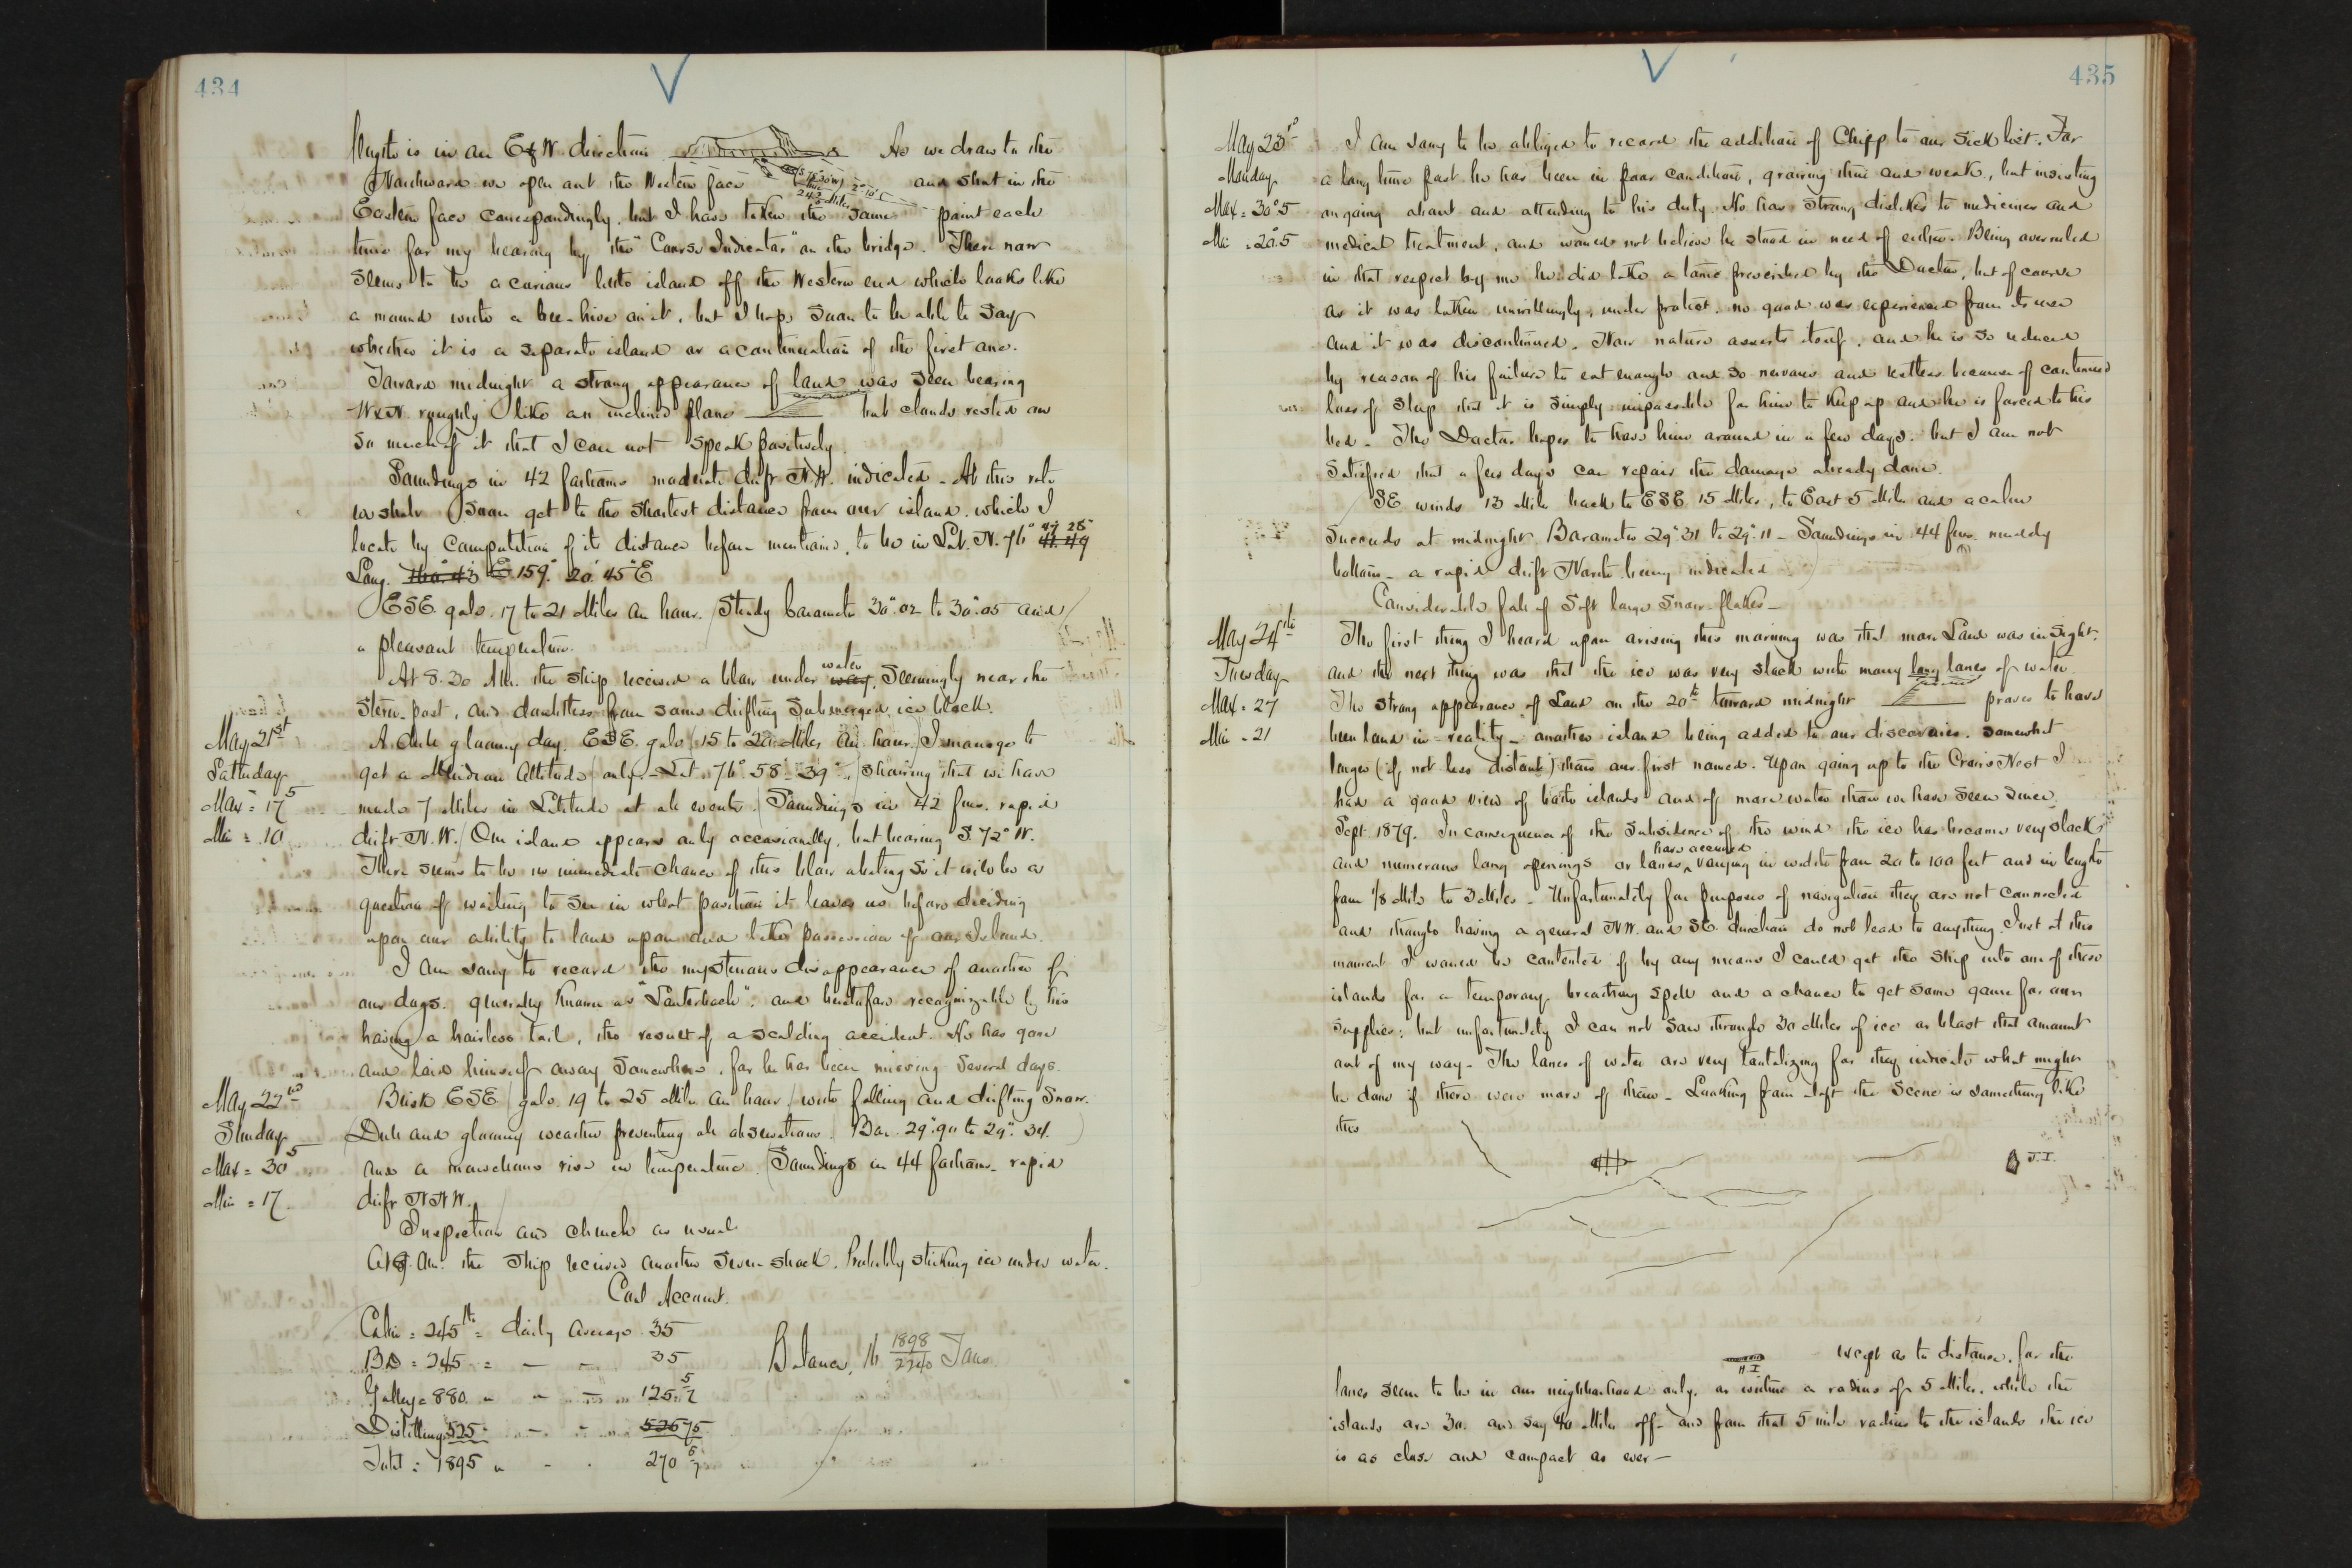 434
length is in an E & W direction As we draw to the
Northward we open out the Western face and shut in the
S 78° 30' W
24 3/5 Miles
2° 10'
Eastern face correspondingly, but I have taken the same point each
time for my bearing by the "Course Indicator" on the bridge. There now
seems to be a curious little island off the Western end which looks like
a mound with a bee-hive on it, but I hope soon to be able to say
whether it is a separate island or a continuation of the first one.
Toward midnight a strong appearance of land was seen bearing
WxN. roughly like an inclined plane but clouds rested on
so much of it that I can not speak positively.
Soundings in 42 fathoms moderate drift N.W. indicated - At this rate
we shall soon get to the shortest distance from our island, which I
locate by computation of its distance before mentioned, to be in Lat. N. 76° 47' 28"
Long. 160° 43' E 159° 20' 45" E
ESE. gale. 17 to 21 Miles an hour. Steady barometer 30".02 to 30".05 and
a pleasant temperature.
At 8.30 AM. the ship received a blow under way, water seemingly near the
stern-post, and doubtless from some drifting submerged ice block.
May 21st
Saturday
Max = 17.5
Min = 10
A dull gloomy day. ESE. gale 15 to 20 Miles an hour. I manage to
get a Meridian Altitude only - Lat. 76° 58' 39", showing that we have
made 7 Miles in Latitude at all events. Soundings in 42 fms. rapid
drift N.W. Our island appears only occasionally, but bearing S. 72° W.
There seems to be no immediate chance of this blow abating so it will be a
question of waiting to see in what position it leaves us before deciding
upon our ability to land upon and take possession of our Island.
I am sorry to record the mysterious disappearance of another of
our dogs. generally known as "Lauterbach", and heretofore recognizable by his
having a hairless tail, the result of a scalding accident. He has gone
and laid himself away somewhere, for he has been missing several days.
May 22nd
Sunday
Max = 30.5
Min = 17
Brisk ESE gale. 19 to 25 Miles an hour, with falling and drifting snow.
Dull and gloomy weather preventing all observations. Bar. 29".90 to 29".34.
and a marvelous rise in temperature. Soundings in 44 fathoms - rapid
drift NNW.
Inspection and church as usual
At 9. AM. the ship received another severe shock. Probably striking ice under water.
Coal Account.
Cabin = 245 lb = daily average 35
B.D = 245 = — - 35
Galley = 880 " " — " 125 5/7
Distilling 525 — - 526 75
Total = 1895 " - . 270 5/7
Balance, 16 1898/2240 Tons
435
May 23rd
Monday
Max = 30°.5
Min = 20.5
I am sorry to be obliged to record the addition of Chipp to our sick list. For
a long time past he has been in poor condition, growing thin and weak, but insisting
on going about and attending to his duty. He has strong dislikes to medicines and
medical treatment, and would not believe he stood in need of either. Being overruled
in that respect by me he did take a tonic prescribed by the Doctor, but of course
as it was taken unwillingly, under protest, no good was experienced from its use
and it was discontinued. Now nature asserts itself, and he is so reduced
by reason of his failure to eat enough and so nervous and restless because of continued
loss of sleep that it is simply impossible for him to keep up and he is forced to his
bed - The Doctor hopes to have him around in a few days. but I am not
satisfied that a few days can repair the damage already done.
SE winds 13 Miles back to ESE 15 Miles, to East 5 Miles and a calm
succeeds at midnight. Barometer 29".31 to 29".11 - Soundings in 44 fms. muddy
bottom - a rapid drift North being indicated
Considerable fall of soft large snow-flakes -
May 24th
Tuesday
Max = 27
Min = 21
The first thing I heard upon arising this morning was that more Land was in sight.
and the next thing was that the ice was very slack with many long lanes of water.
The strong appearance of Land on the 20th toward midnight proves to have
been land in reality - another island being added to our discoveries. somewhat
larger (if not less distant) than our first named. Upon going up to the Crow's Nest I
had a good view of both islands and of more water than we have seen since
Sept. 1879. In consequence of the subsidence of the wind the ice has become very slack
and numerous long openings or lanes have occurred varying in width from 20 to 100 feet and in length
from 1/8 Mile to 3 Miles - Unfortunately for purposes of navigation they are not connected
and though having a general NW. and SE. direction do not lead to anything. Just at this
moment I would be contented if by any means I could get the ship into one of these
islands for a temporary breathing spell and a chance to get some game for our
supplies; but unfortunately I can not saw through 30 Miles of ice or blast that amount
out of my way - The lanes of water are very tantalizing for they indicate what might
be done if there were more of them - Looking from aloft the scene is something like
this
J.I.
H.I
except as to distance, for the
lanes seem to be in our neighborhood only, or within a radius of 5 Miles, while the
islands are 30. and say 40 Miles off - and from that 5 mile radius to the islands the ice
is as close and compact as ever -